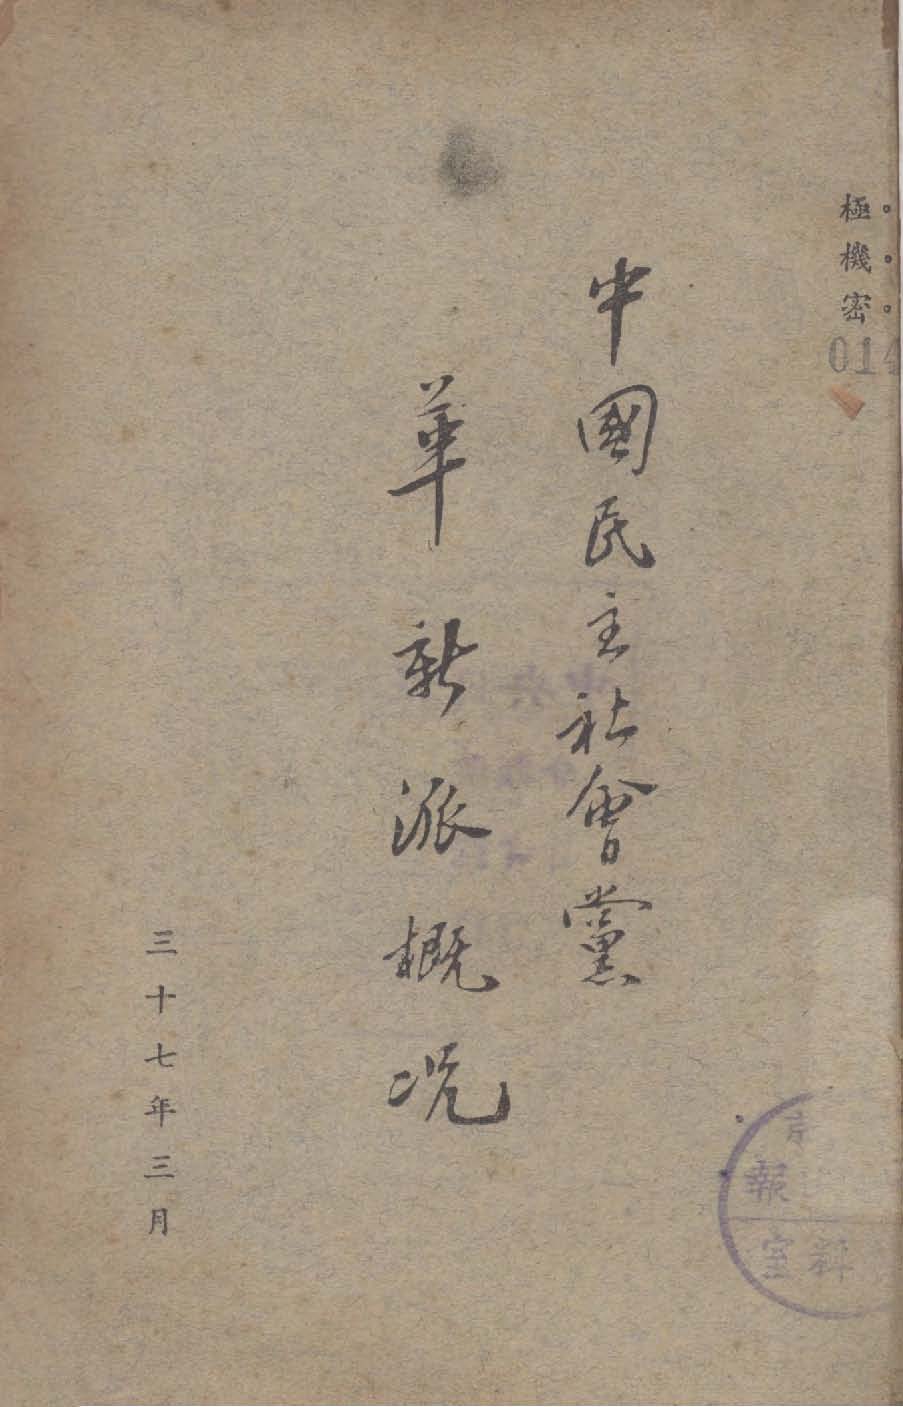 極機密
014
中國民主社會黨
革新派概況
三十七年三月
報
室料